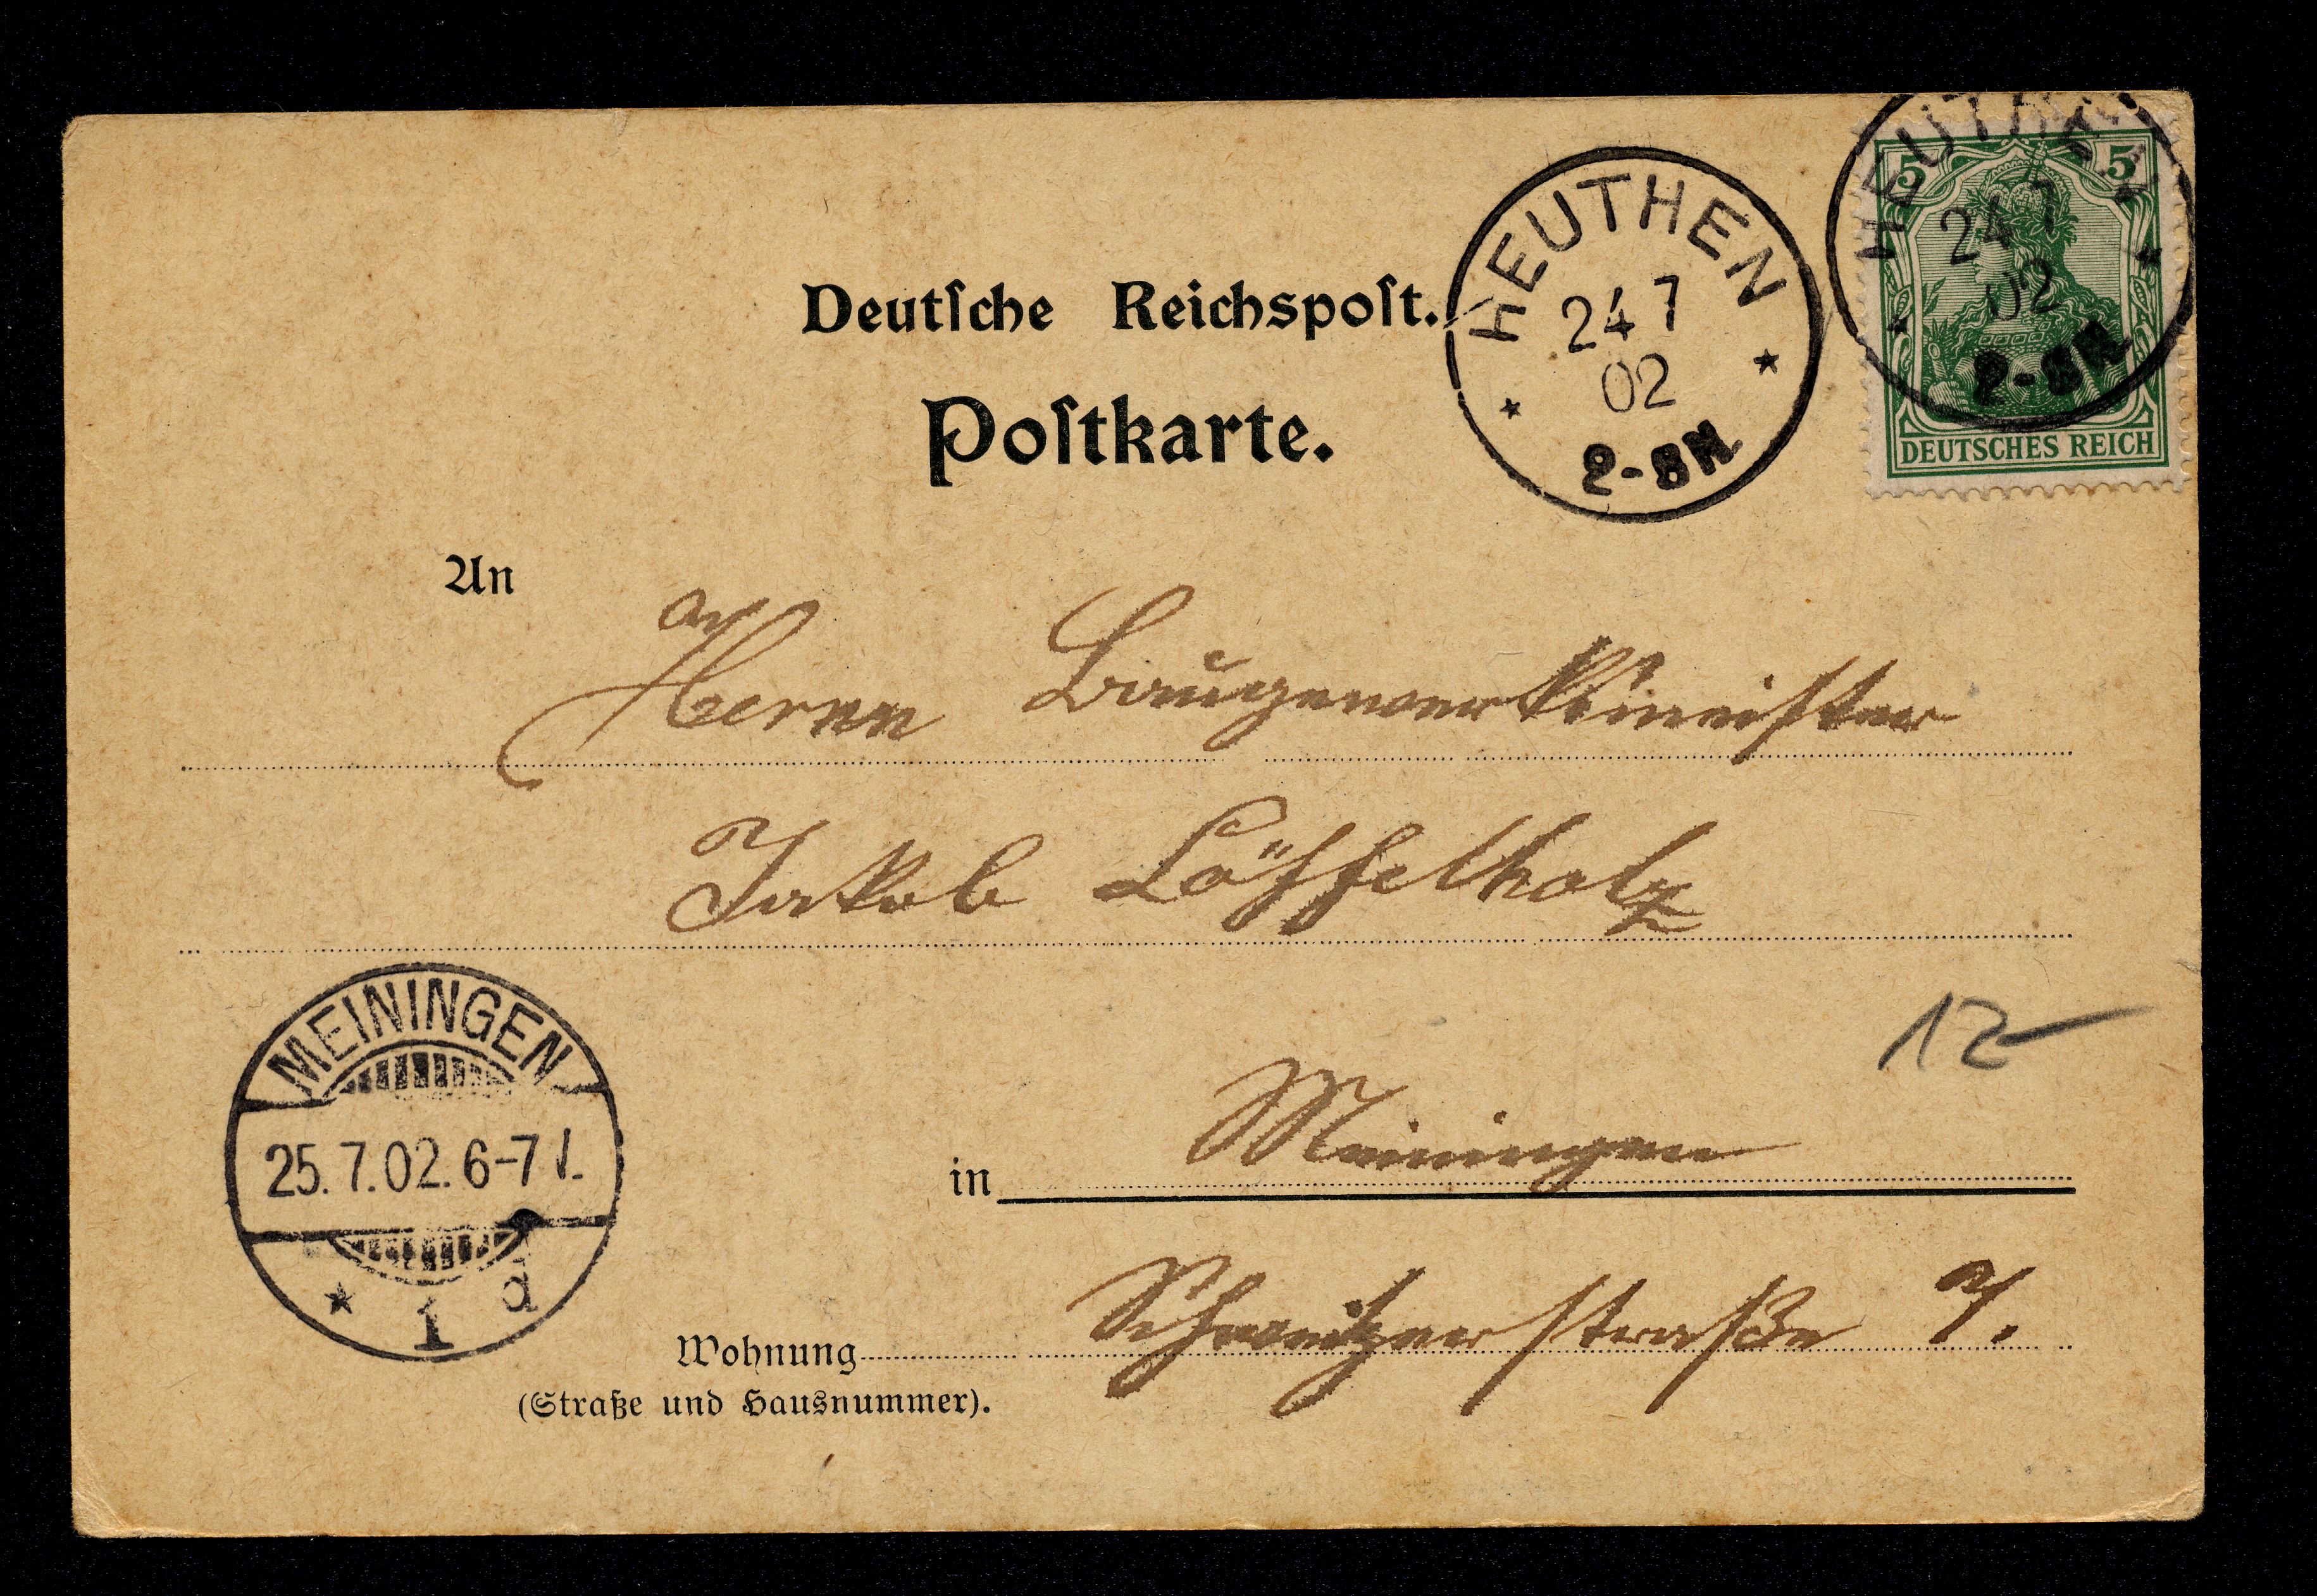 Deutsche Reichspost.
Postkarte.
HEUTHEN
24 7
02
2-8N
HEUTHEN
24 7
02
2-8N
5 5
DEUTSCHES REICH
An
Herrn Baugewerksmeister
Jakob Löffelholz
MEININGEN
25.7.02. 6-7
1 d
12
in Meiningen
Wohnung
(Straße und Hausnummer).
Schweitzerstraße 7.